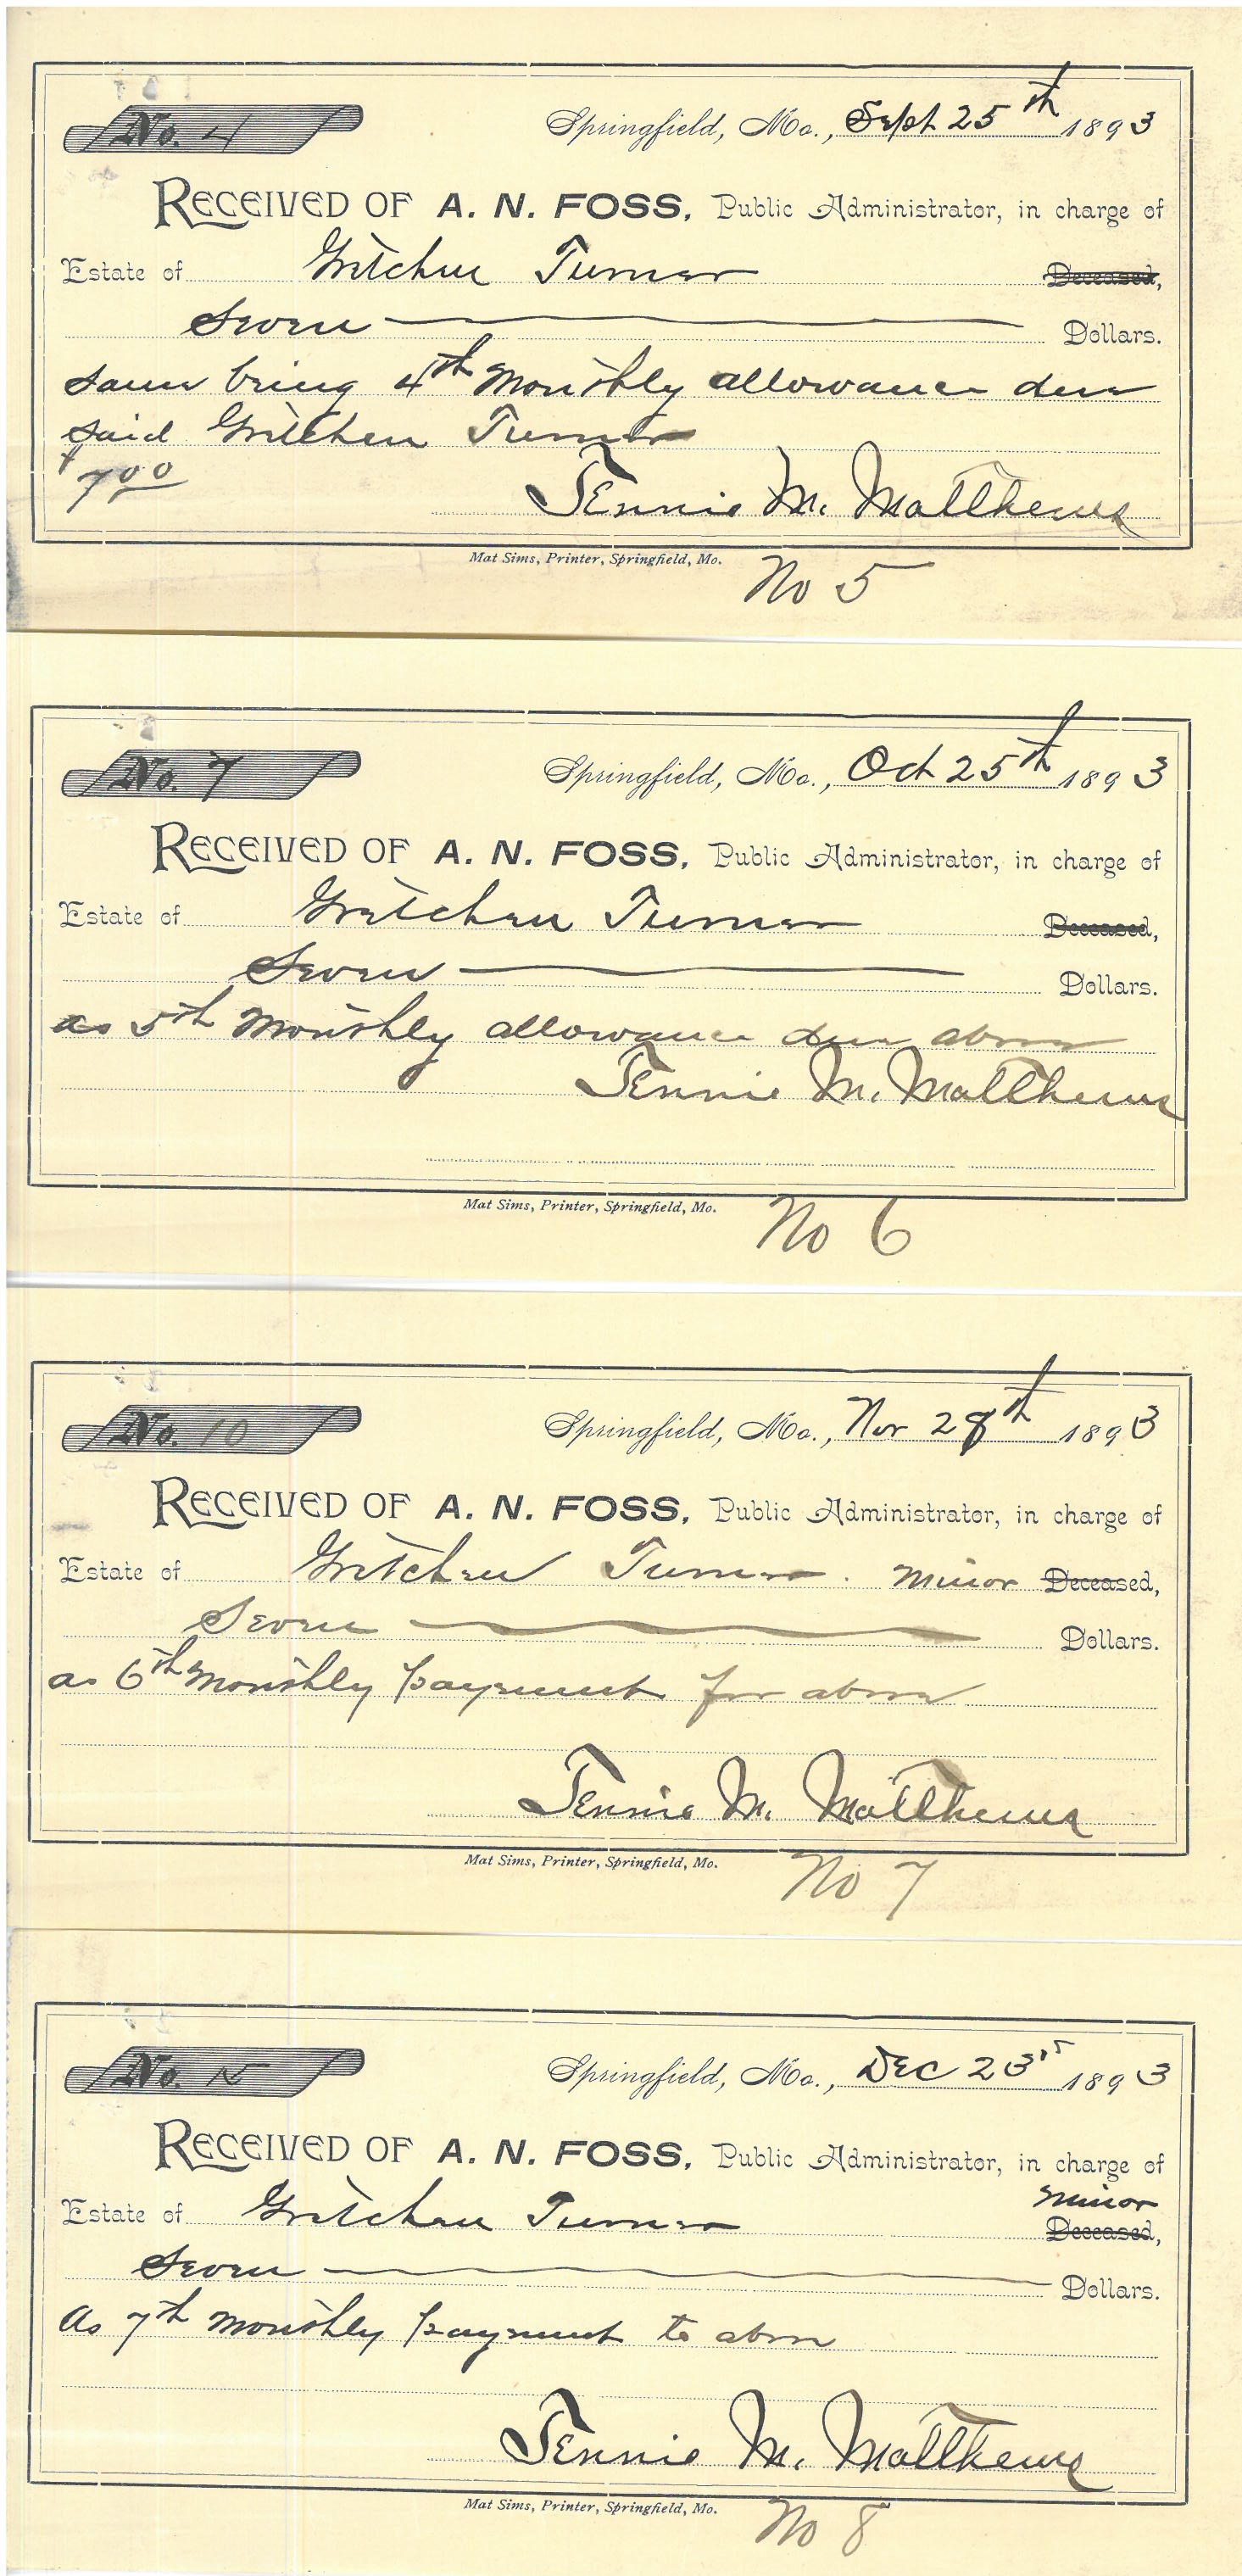 No. 4
Springfield, Mo., Sept 25th 1893
RECEIVED OF A. N. FOSS, Public Administrator, in charge of
Estate of Gretchen Turner Deceased,
Seven Dollars.
same being 4th Monthly allowance due
said Gretchen Turner
$7.00
Jennie M. Matthews
Mat Sims, Printer, Springfield, Mo.
No 5
No. 7
Springfield, Mo., Oct 25th 1893
RECEIVED OF A. N. FOSS, Public Administrator, in charge of
Estate of Gretchen Turner Deceased,
Seven Dollars.
as 5th Monthly allowance due above
Jennie M. Matthews
Mat Sims, Printer, Springfield, Mo.
No 6
No. 10
Springfield, Mo., Nov 28th 1893
RECEIVED OF A. N. FOSS, Public Administrator, in charge of
Estate of Gretchen Turner. Minor Deceased,
Seven Dollars.
as 6th Monthly payment for above
Jennie M. Matthews
Mat Sims, Printer, Springfield, Mo.
No 7
No.
Springfield, Mo., Dec 23 1893
RECEIVED OF A. N. FOSS, Public Administrator, in charge of
Minor
Estate of Gretchen Turner Deceased,
Seven Dollars.
As 7th Monthly payment to above
Jennie M. Matthews
Mat Sims, Printer, Springfield, Mo.
No 8